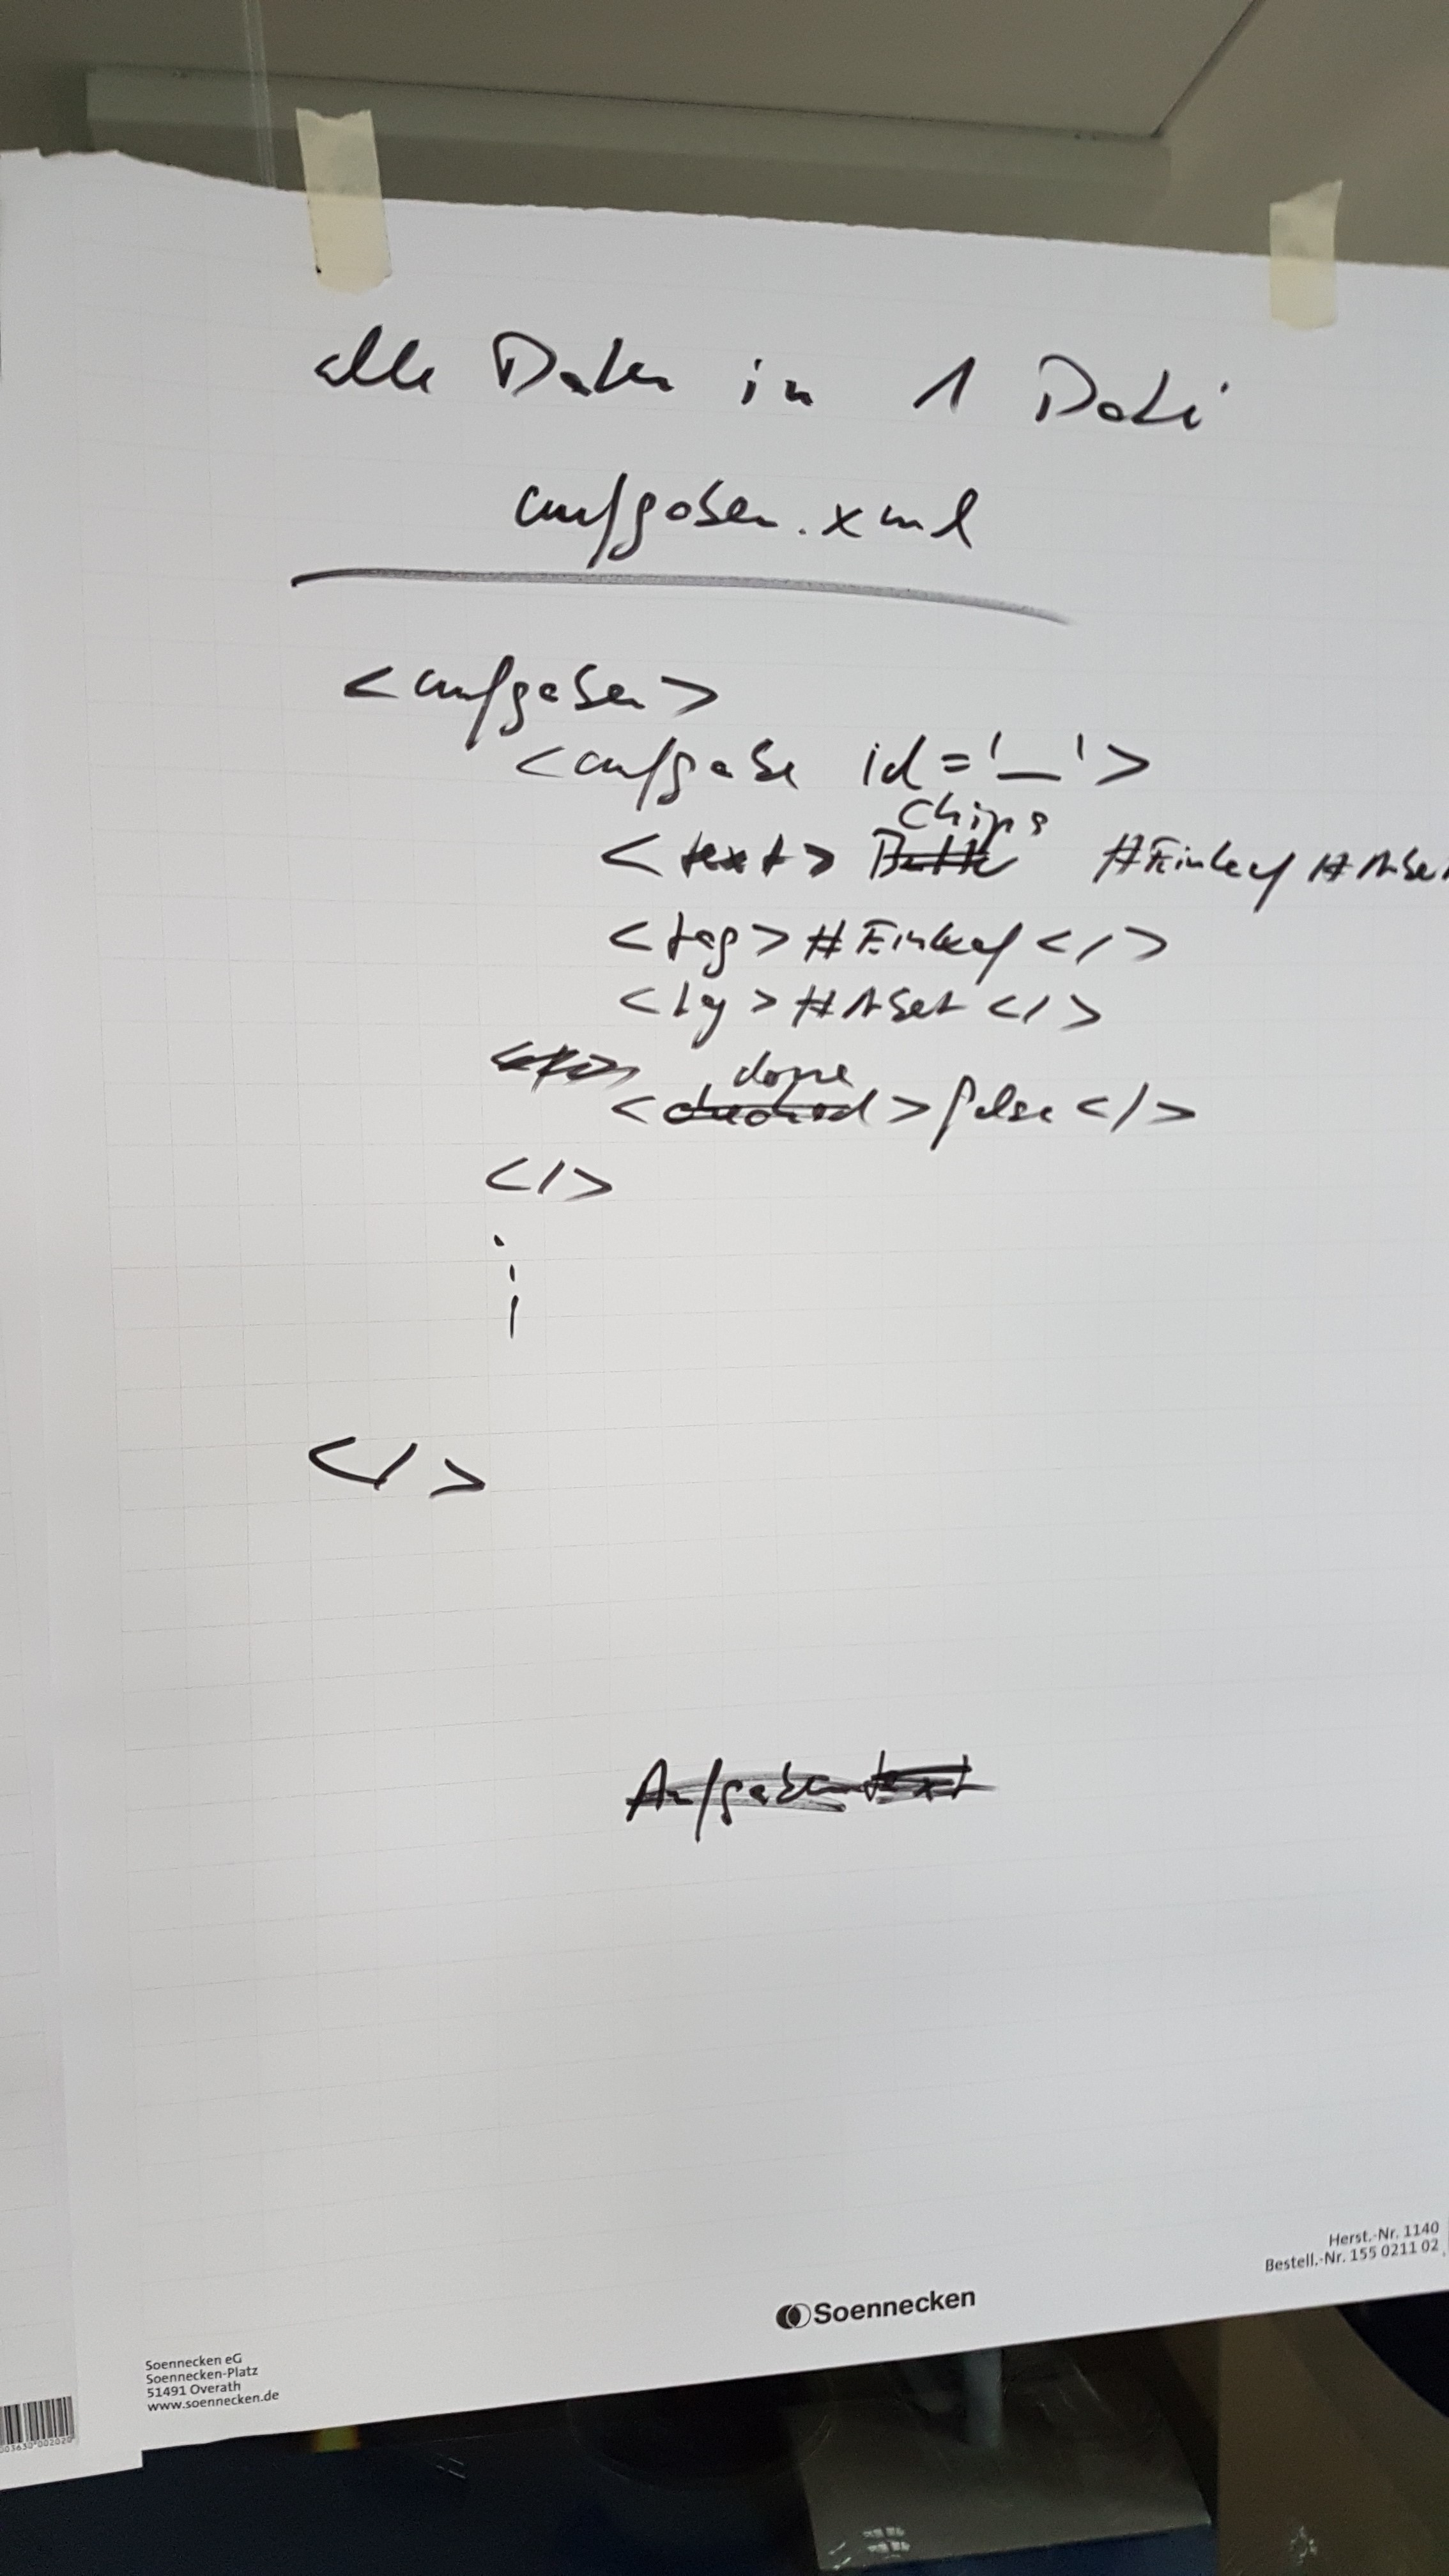 alle Daten in 1 Datei
aufgaben.xml
<aufgaben>
<aufgabe id='_'>
Chips
<text> Butter #Einkauf #Aben
<tag> #Einkauf </>
<tag> #Abend </>
done
<checked> false </>
</>
</>
Aufgabentext
Herst.-Nr. 1140
Bestell.-Nr. 155 0211 02
Soennecken
Soennecken eG
Soennecken-Platz
51491 Overath
www.soennecken.de